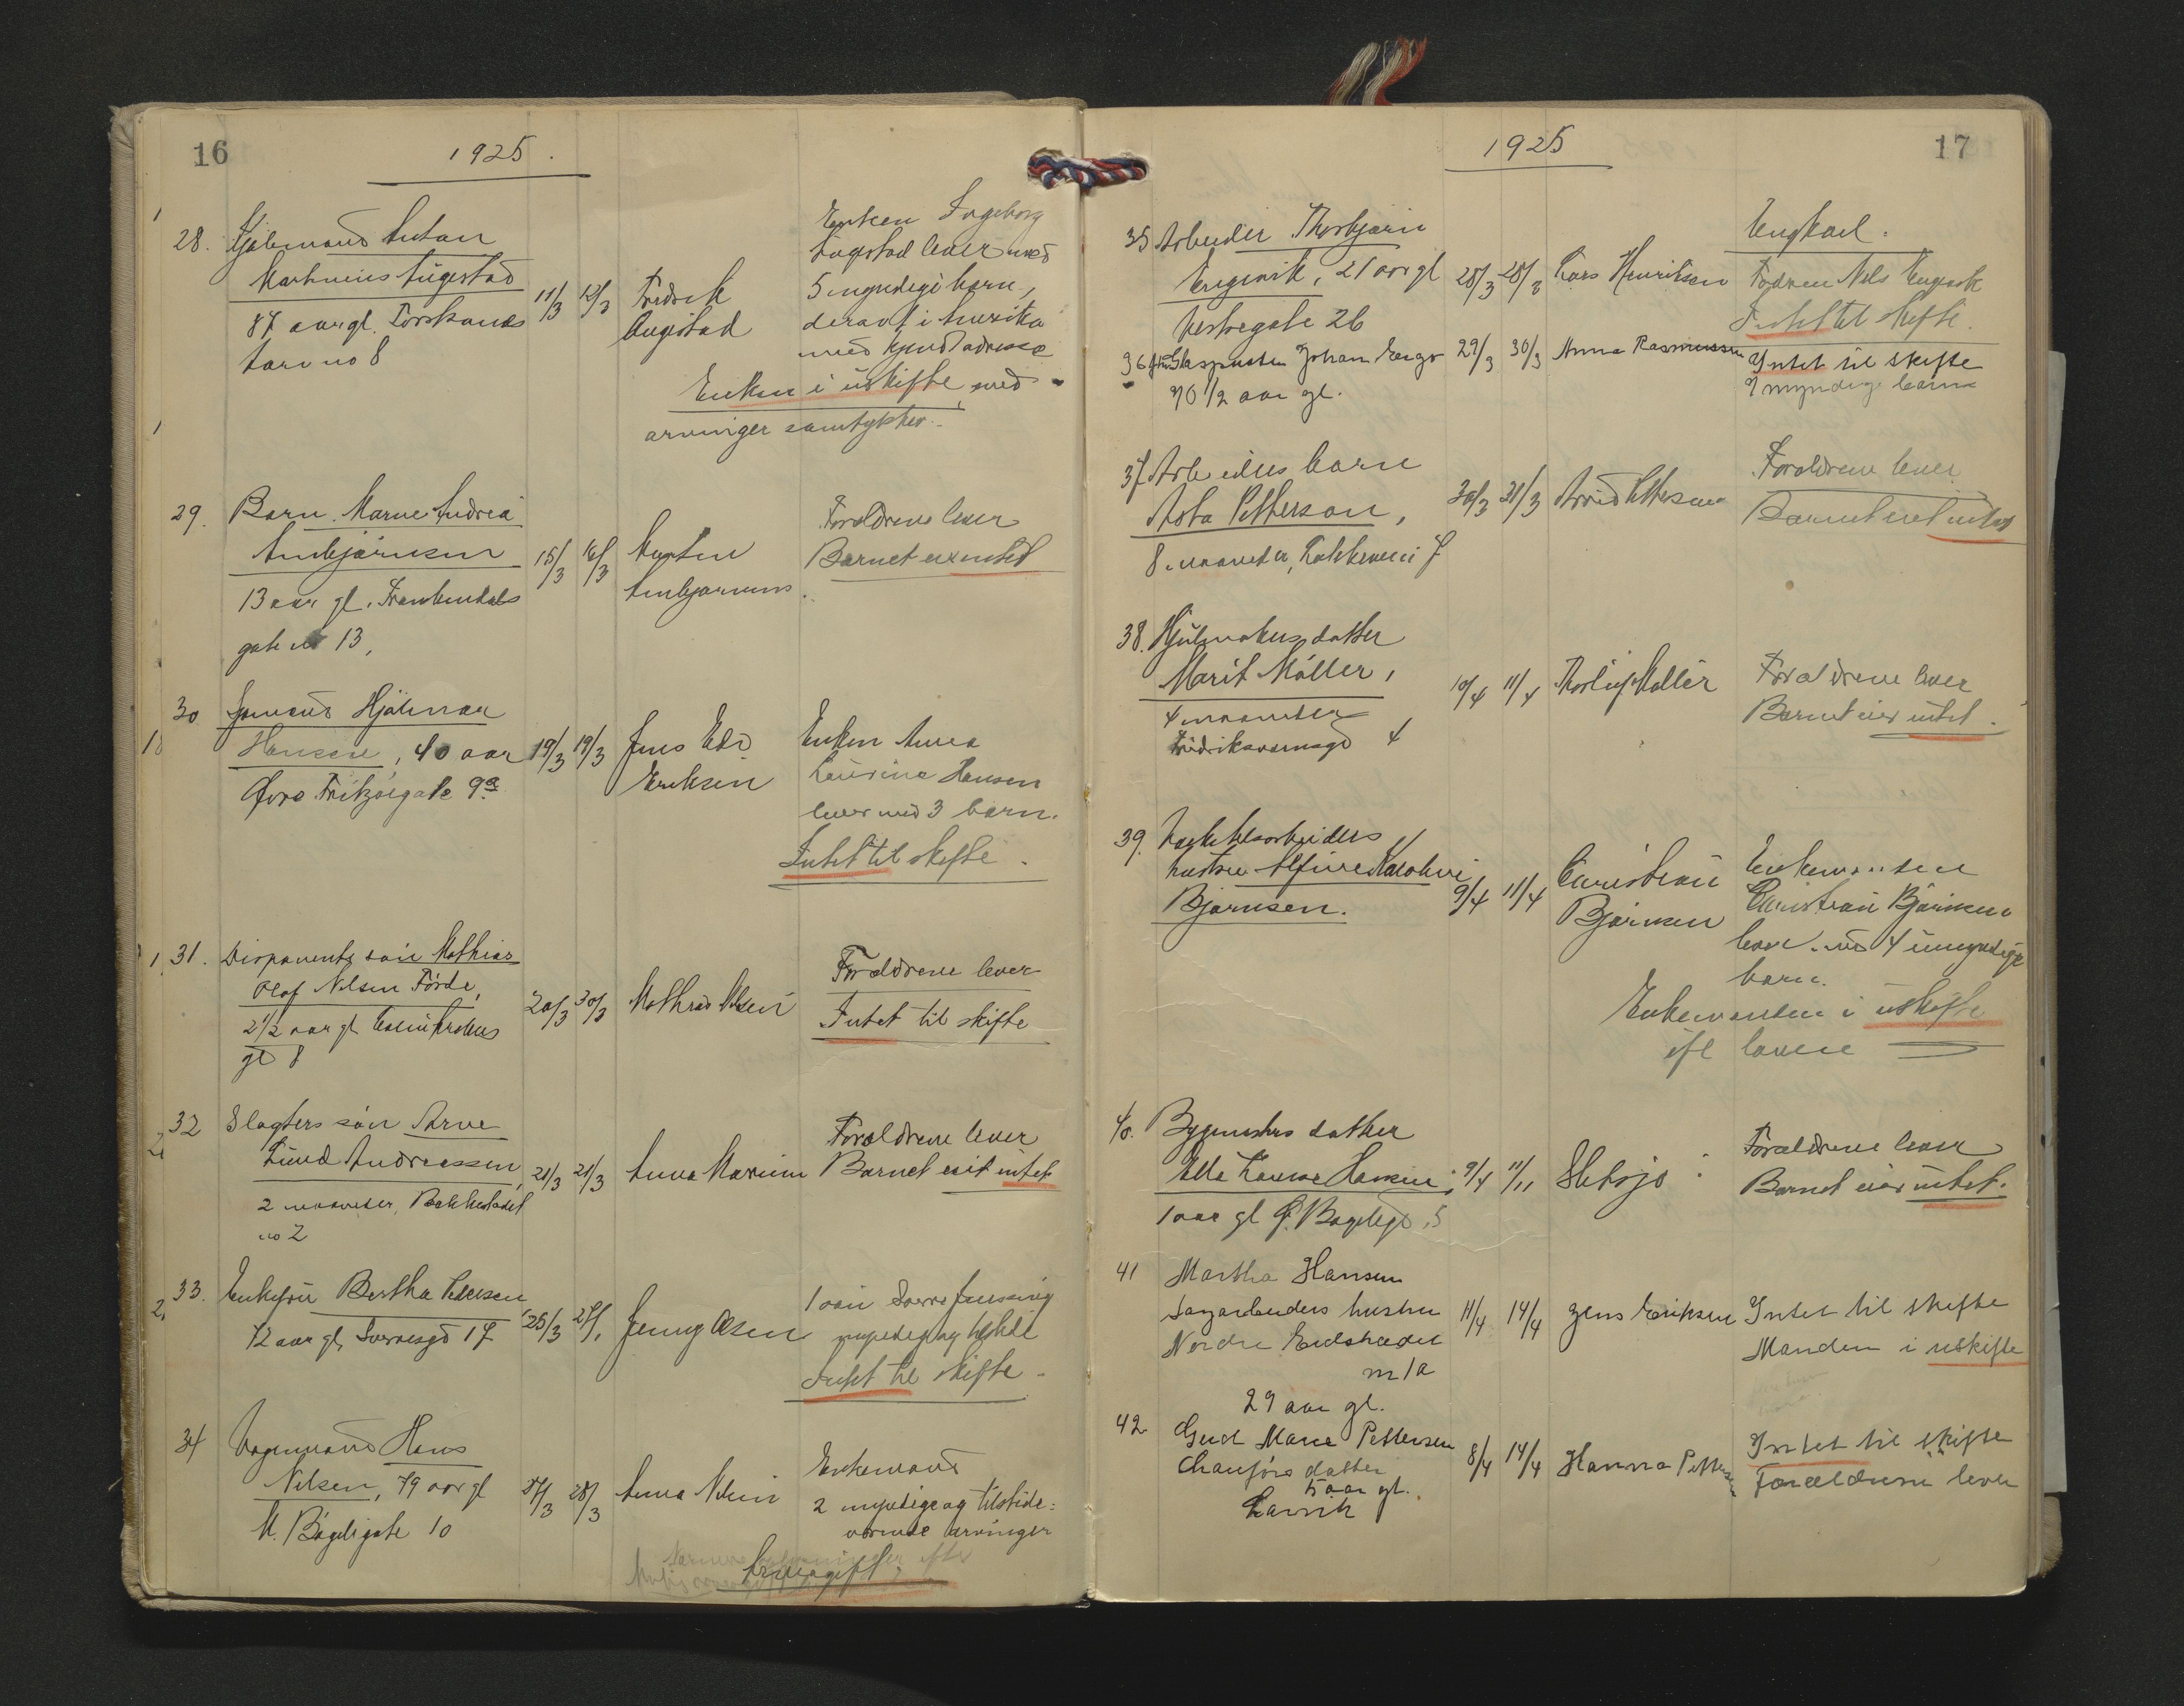 16
1925.
28. Sjømand Anton
Martinius Augestad
87 aar gl. Torstrands
12/3
Fredrik
Augestad
Enken Ingeborg
Augestad lever med
5 myndige barn,
derav 1 i Amerika
med kjendt adresse
Enken i uskifte med
arvinger samtykke.
29. Barn Marne Andrea
Anbjørnsen
13 aar gl. Frankendals
gate no 13,
15/3 16/3
Anbjørnsen
Forældrene lever
Barnet eier intet
30 Sømand Hjalmar
Hansen, 40 aar
Øvre Fritzøegate 9a
19/3 19/3
Jens Edv
Eriksen
Enken Anna
Laurine Hansen
lever med 3 barn.
Intet til skifte.
31. Disponents søn Mathias
Olaf Nilsen Førde,
2 1/2 aar gl
gt 8
20/3 20/3
Mathias Nilsen
Forældrene lever
Intet til skifte
32 Slagters søn Arve
Lund Andreassen,
2 maaneder, Bakkestadet
no 2
21/3 21/3
Anna Marium
Forældrene lever
Barnet eiet intet
33. Enkefru Bertha Pedersen
72 aar gl, Sverresgt 17
25/3 27/
Jenny Olsen
1 søn Sverre
myndig og tilstede
Intet til skifte.
34 Vognmand Hans
Nilsen, 79 aar gl
N. Bøgeligate 10
27/3 28/3
Anna Nilsen
Enkemand
2 myndige og tilstede-
værende arvinger
17
1925
35 Arbeider Thorbjørn
Engevik, 21 aar gl
Vestregate 26
28/3 28/3
Lars Henriksen
Ungkarl.
Fadren Nils Engevik
Intet til skifte.
36 Johan
70 1/2 aar gl.
29/3 30/3
Anna Rasmussen
Intet til skifte
7 myndige barn
37. Arbeiders barn
Asta Petterson,
8 maaneder,
30/3 31/3
Arvid Petterson
Forældrene lever
Barnet eiet intet
38. Hjulmakers datter
Marit Møller,
4 maaneder
Fredriksvernsgt 4
10/4 11/4
Thorleif Møller
Forældrene lever
Barnet eier intet.
39.
hustru Alfine Karoline
Bjørnsen.
9/4 11/4
Christian
Bjørnsen
Enkemanden
Christian Bjørnsen
lever med 4 umyndige
barn.
Enkemanden i uskifte
ifl loven
40. Bygmesters datter
Ella Lovise Hansen,
1 aar gl Ø. Bøgeligt 5
9/4 11/11
Sletsjø
Forældrene lever
Barnet eier intet.
41 Martha Hansen
Sagarbeiders hustru
Nordre Eidstrædet
no 1a
29 aar gl.
11/4 14/4
Jens Eriksen
Intet til skifte
Manden i uskifte
42. Gerd Marie Pettersen
Chauførs datter
5 aar gl.
Larvik
8/4 14/4
Hanna Pettersen
Intet til skifte
Forældrene lever